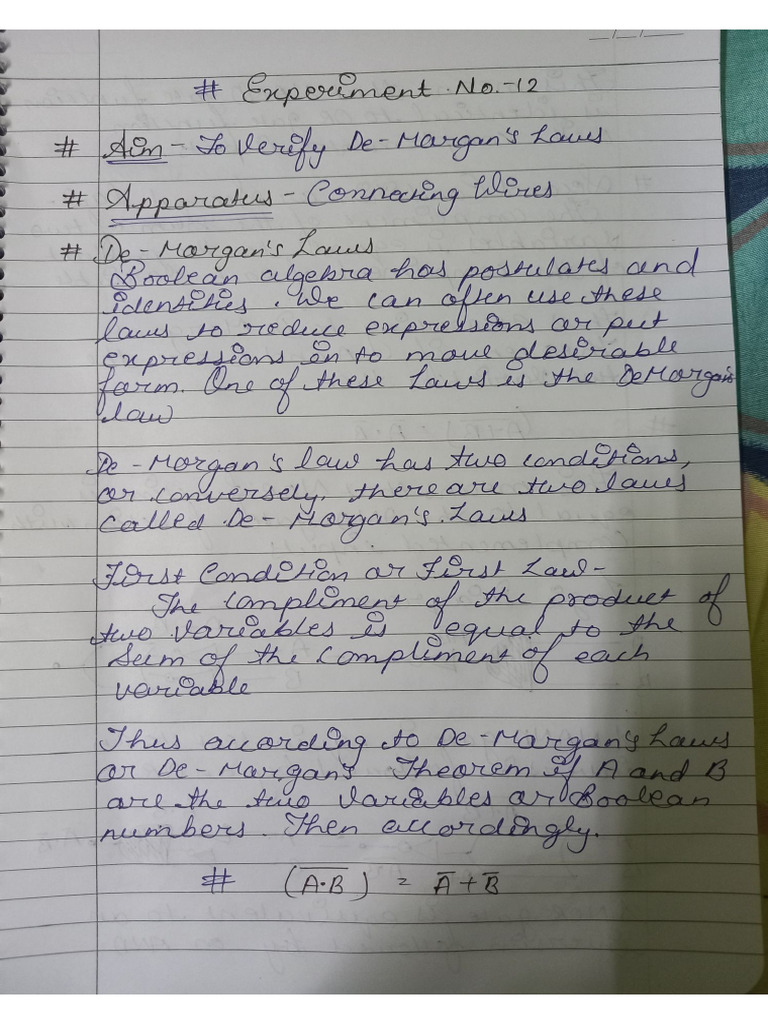 # Experiment No.-12
# Aim - To Verify De-Margan's Laws
# Apparatus - Connecting Wires
# De-Morgan's Laws
Boolean algebra has postulates and
identities. We can often use these
laws to reduce expressions or put
expressions in to move desirable
farm. One of these Laws is the DeMorgan's
law
De-Morgan's law has two conditions,
or conversely, there are two laws
called De-Morgan's Laws
First Condition or First Law-
The compliment of the product of
two variables is equal to the
Sum of the compliment of each
variable
Thus according to De-Margan's Laws
or De-Margan's Theorem if A and B
are the two variables or Boolean
numbers. Then accordingly.
# (A̅·̅B̅) = A̅ + B̅